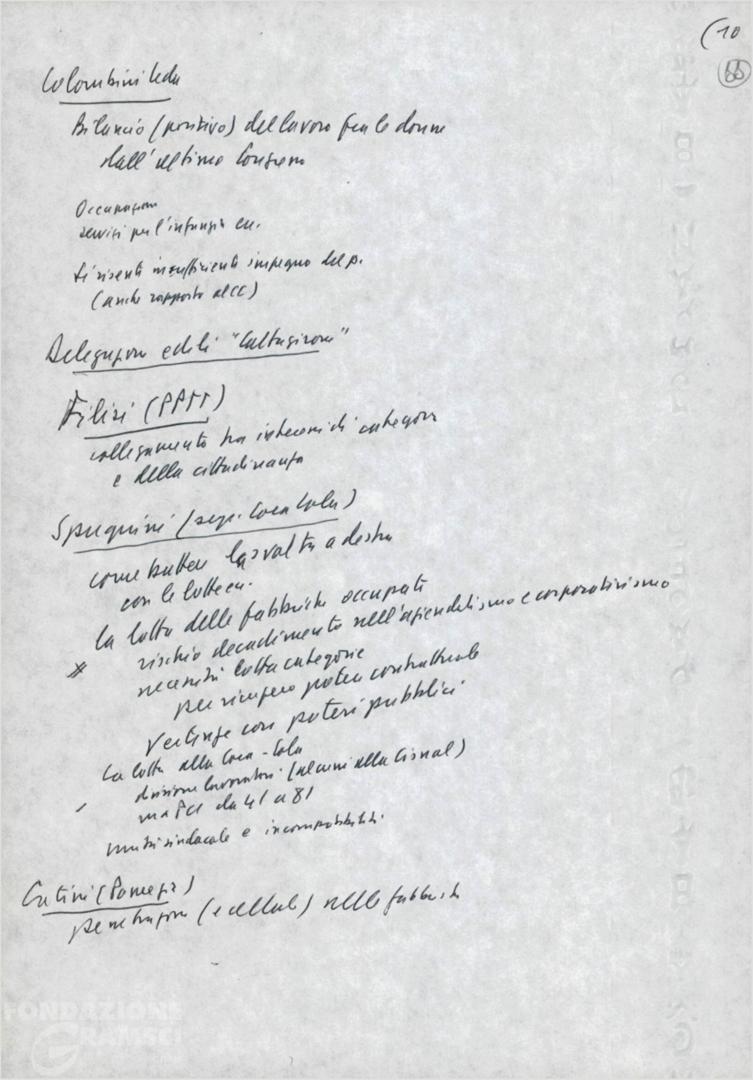 (10
66
Colombini Leda
Bilancio (positivo) del lavoro fra le donne
dall'ultimo Congresso
Occupazione
servizi per l'infanzia ecc.
Si risente insufficiente impegno del p.
(anche rapporto al CC)
Delegazione edili "Caltagirone"
Filisi (PPTT)
collegamento tra interessi di categoria
e della cittadinanza
(sez. Coca Cola)
come battere la svolta a destra
con le lotte ecc.
la lotta delle fabbriche occupate
rischio decadimento nell'aziendalismo e corporativismo
necessità lotta categorie
per recupero potere contrattuale
Vertenze con poteri pubblici
La lotta alla Coca-Cola
divisione lavoratori (alcuni alla Cisnal)
ma PCI da 41 a 81
unità sindacale e incompatibilità.
(Pomezia)
penetrazione (e cellule) nelle fabbriche
FONDAZIONE
GRAMSCI